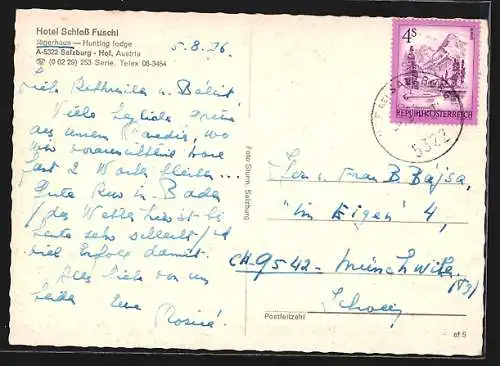 Hotel Schloß Fuschl
Jägerhaus — Hunting lodge
A-5322 Salzburg - Hof, Austria
☎ (0 62 29) 253 Serie, Telex 06-3454
5.8.76
Liebe
Viele herzliche Grüße
aus unserem Paradies, wo
wir voraussichtlich
fast 2 Wochen bleiben...
Gute Kur in Baden
(das Wetter hier ist bis
heute sehr schlecht) u.
viel Erfolg damit.
Alles liebe von uns
beiden Eure
Foto Sturm, Salzburg
4S
REPUBLIK ÖSTERREICH
5322
Herrn u. Frau B. Bajsa,
"Im Eigen" 4,
CH-9542-Münchwilen
(Tg)
Schweiz
Postleitzahl